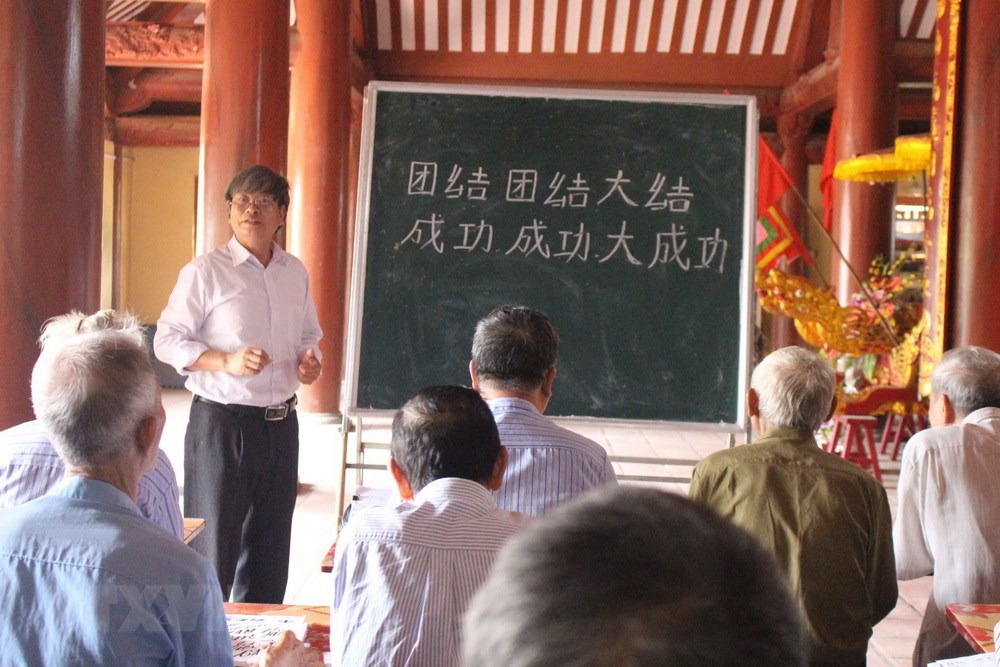 团结团结大结
成功.成功.大成功
TTXVN